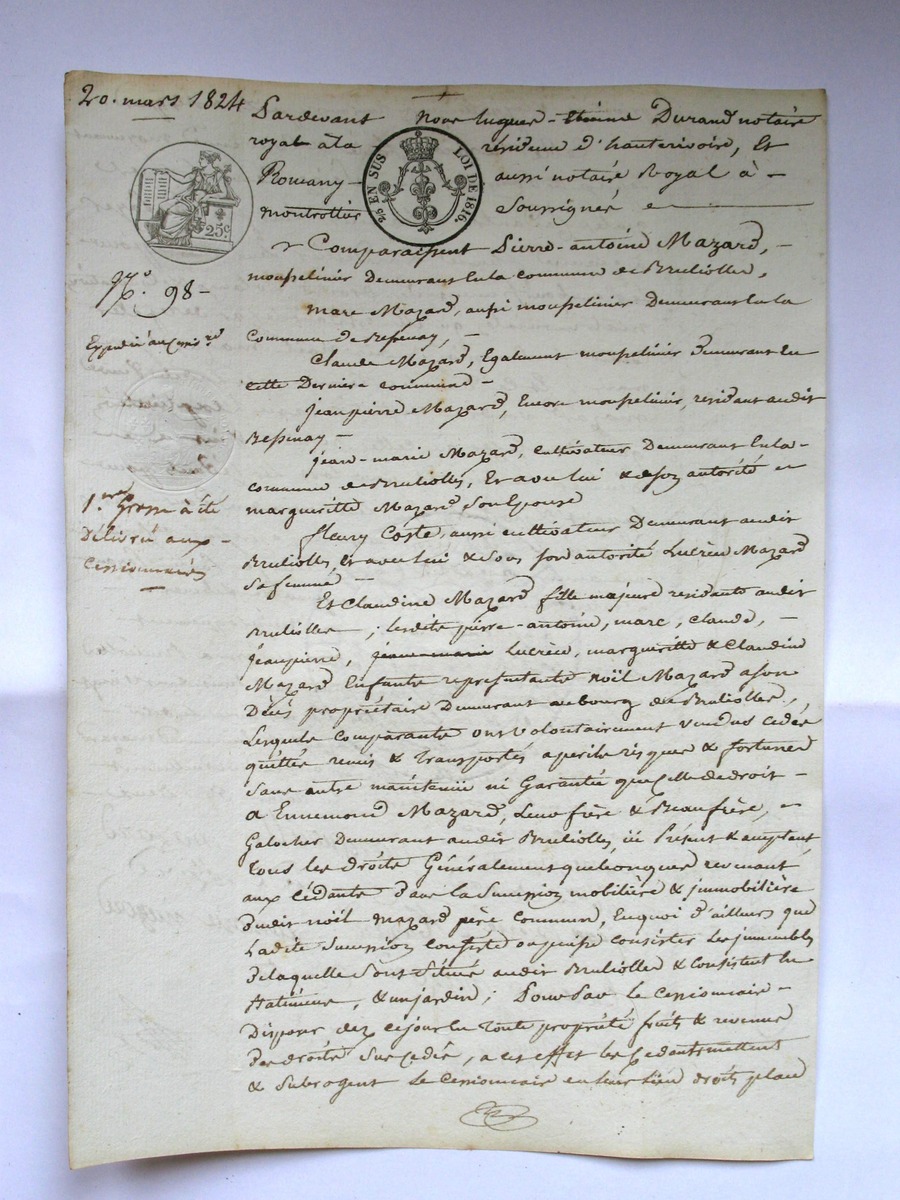 20. mars 1824
Pardevant nous hugues-étienne Durand notaire
royal à la résidence d'hauterivoire, Et
Romany aussi notaire Royal à
montrottier Soussignés
25 EN SUS LOI DE 1816.
25c
N.o 98
1.ere Grosse à été
délivré aux
Cessionnaires
Comparaissent Pierre-antoine Mazard,
mousselinier Demeurant En la commune de Brulliolles,
marc Mazard, aussi mousselinier Demeurant En la
Commune de Bessenay,
Claude Mazard, Egalement mousselinier Demeurant En
cette Derniere commune
jean pierre Mazard, Encore mousselinier, résidant audit
Bessenay
jean-marie Mazard, cultivateur Demeurant En la
commune de Brulliolles, Et avec lui & de son autorité
margueritte Mazard Son Epouse
fleury Coste, aussi cultivateur Demeurant audit
Brulliolles, Et avec lui & Sous son autorité Lucrèce Mazard
Sa femme
Et Claudine Mazard fille majeure residante audit
Brulliolles; lesdits pierre-antoine, marc, claude,
jean pierre, jean-marie Lucrèce, margueritte & Claudine
Mazard Enfants representants noël Mazard a son
Décès propriétaire Demeurant au bourg de Brulliolles,
Lesquels comparants ont volontairement vendus cédés
quittés remis & transportés a perils risques & fortunes
Sans autre maintenue ni Garantie que celle de droit
a Ennemond Mazard, Leur frère & Beaufrère,
Galocher Demeurant audit Brulliolles, ici Présent & acceptant
tous les droits Généralement quelconques revenant
aux cédants dans la Succession mobilière & immobilière
dudit noël mazard père commun, En quoi d'ailleurs que
Ladite Succession consiste ou puisse consister Les immeubles
de laquelle Sont Situés audit Brulliolles & consistent En
batiments, & un jardin; Pour Par le cessionnaire
Disposer dez ce jour En toute propriété fruits & revenus
des droits Sus cédés, a cet effet les Cedants mettent
& Subrogent le cessionnaire en leur lieu droits place